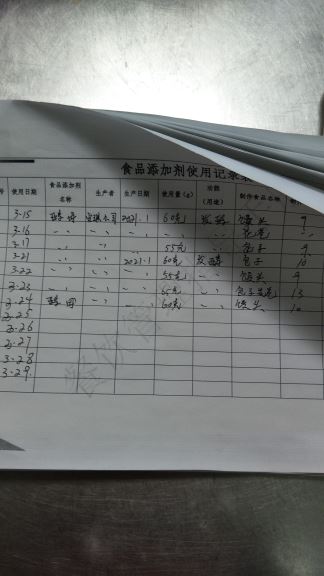 食品添加剂使用记录
号 使用日期 食品添加剂名称 生产者 生产日期 使用量(g) 功能(用途) 制作食品名称
3-15 酵母 2021.1 60克 发酵 馒头 9
3-16 〃 〃 〃 〃 花卷 〃
3-17 〃 〃 55克 〃 包子 9
3-21 〃 〃 2021.1 60克 发酵 包子 10
3-22 〃 〃 〃 55克 〃 馒头 9
3-23 〃 〃 〃 65克 〃 包子花卷 13
3-24 酵母 〃 〃 60克 〃 馒头 10
3-25
3-26
3-27
3-28
3-29
餐饮管